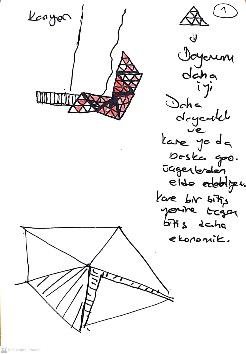 Kanyon
1
daha
iyi
Daha
dayanıklı
ve
kare ya da
başka geo.
üçgenlerden
elde edebiliyor.
Kare bir bitiş
yerine üçgen
bitiş daha
ekonomik.